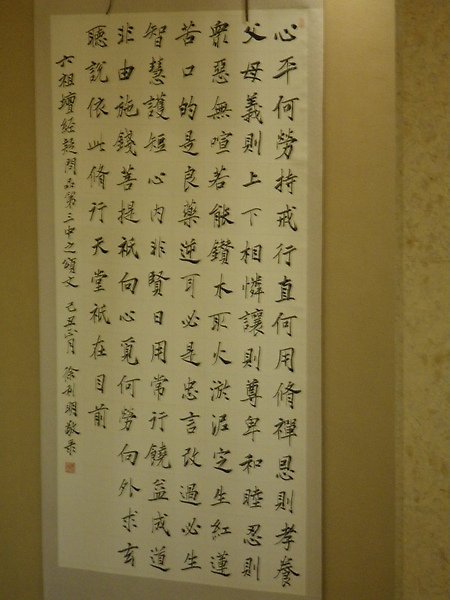 心平何勞持戒行直何用脩禪恩則孝養
父母義則上下相憐讓則尊卑和睦忍則
眾惡無喧若能鑽木取火淤泥定生紅蓮
苦口的是良藥逆耳必是忠言改過必生
智慧護短心內非賢日用常行饒益成道
非由施錢菩提祇向心覓何勞向外求玄
聽說依此脩行天堂祇在目前
六祖壇經疑問品第三中之頌文 己丑 月 徐利明敬录